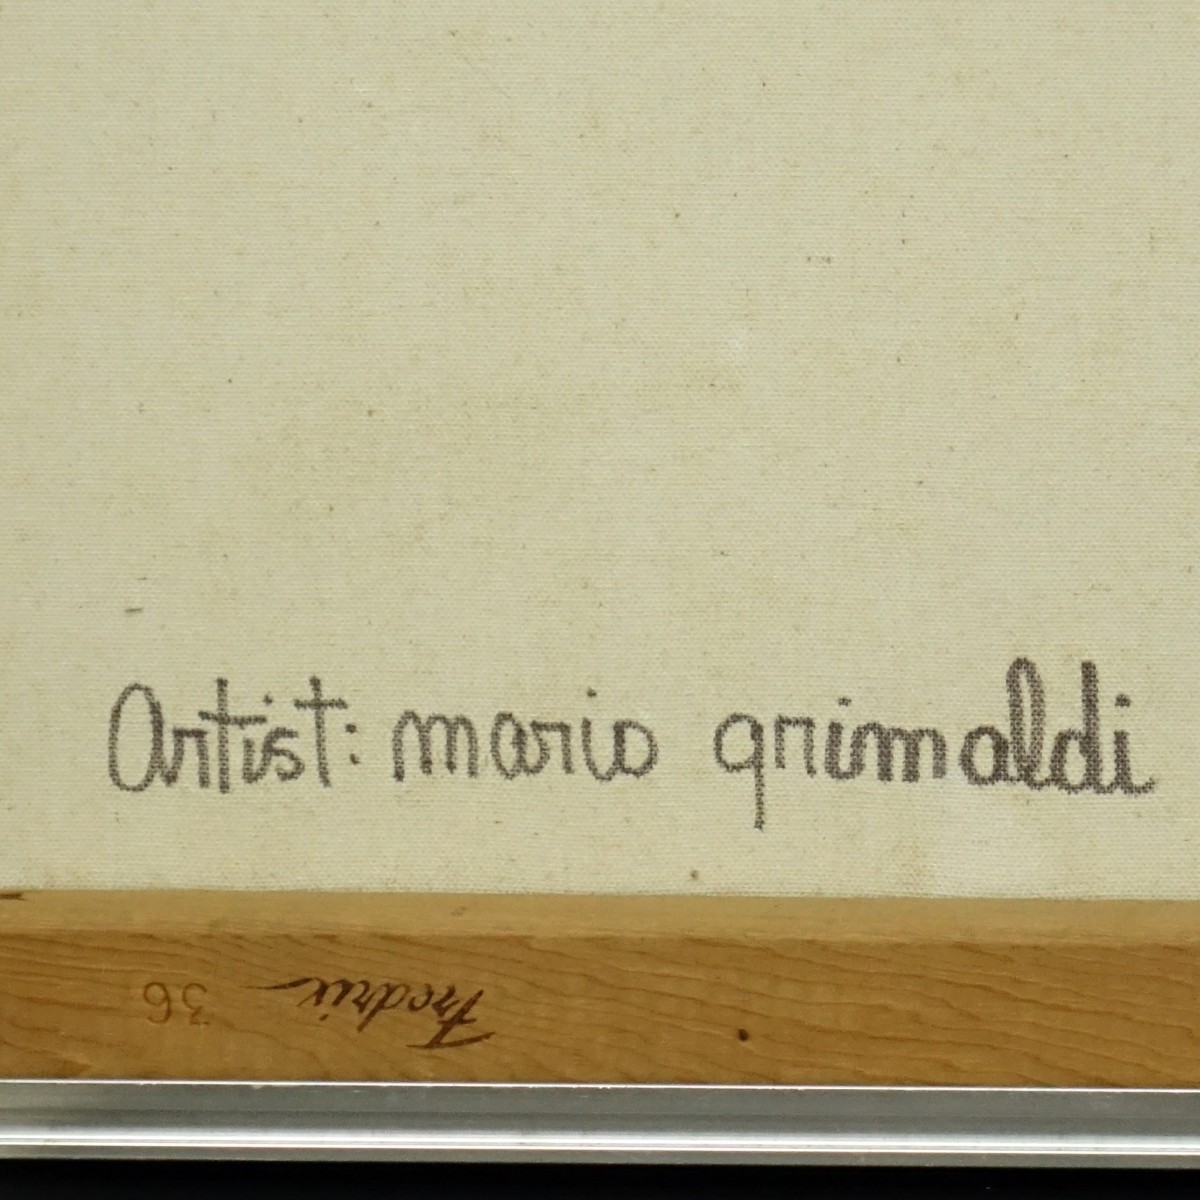 Artist: mario grimaldi
Fredrix 36